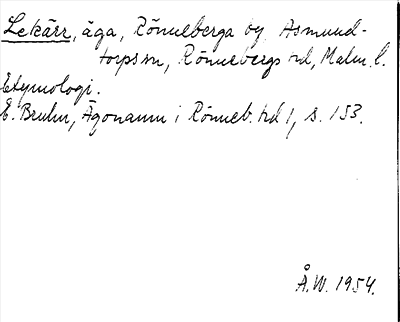 Lekärr, äga, Rönneberga by, Asmund-
torps sn, Rönnebergs hd, Malm. l.
Etymologi.
E. Bruhn, Ägonamn i Rönneb. hd 1, s. 153.
Å.W. 1954.